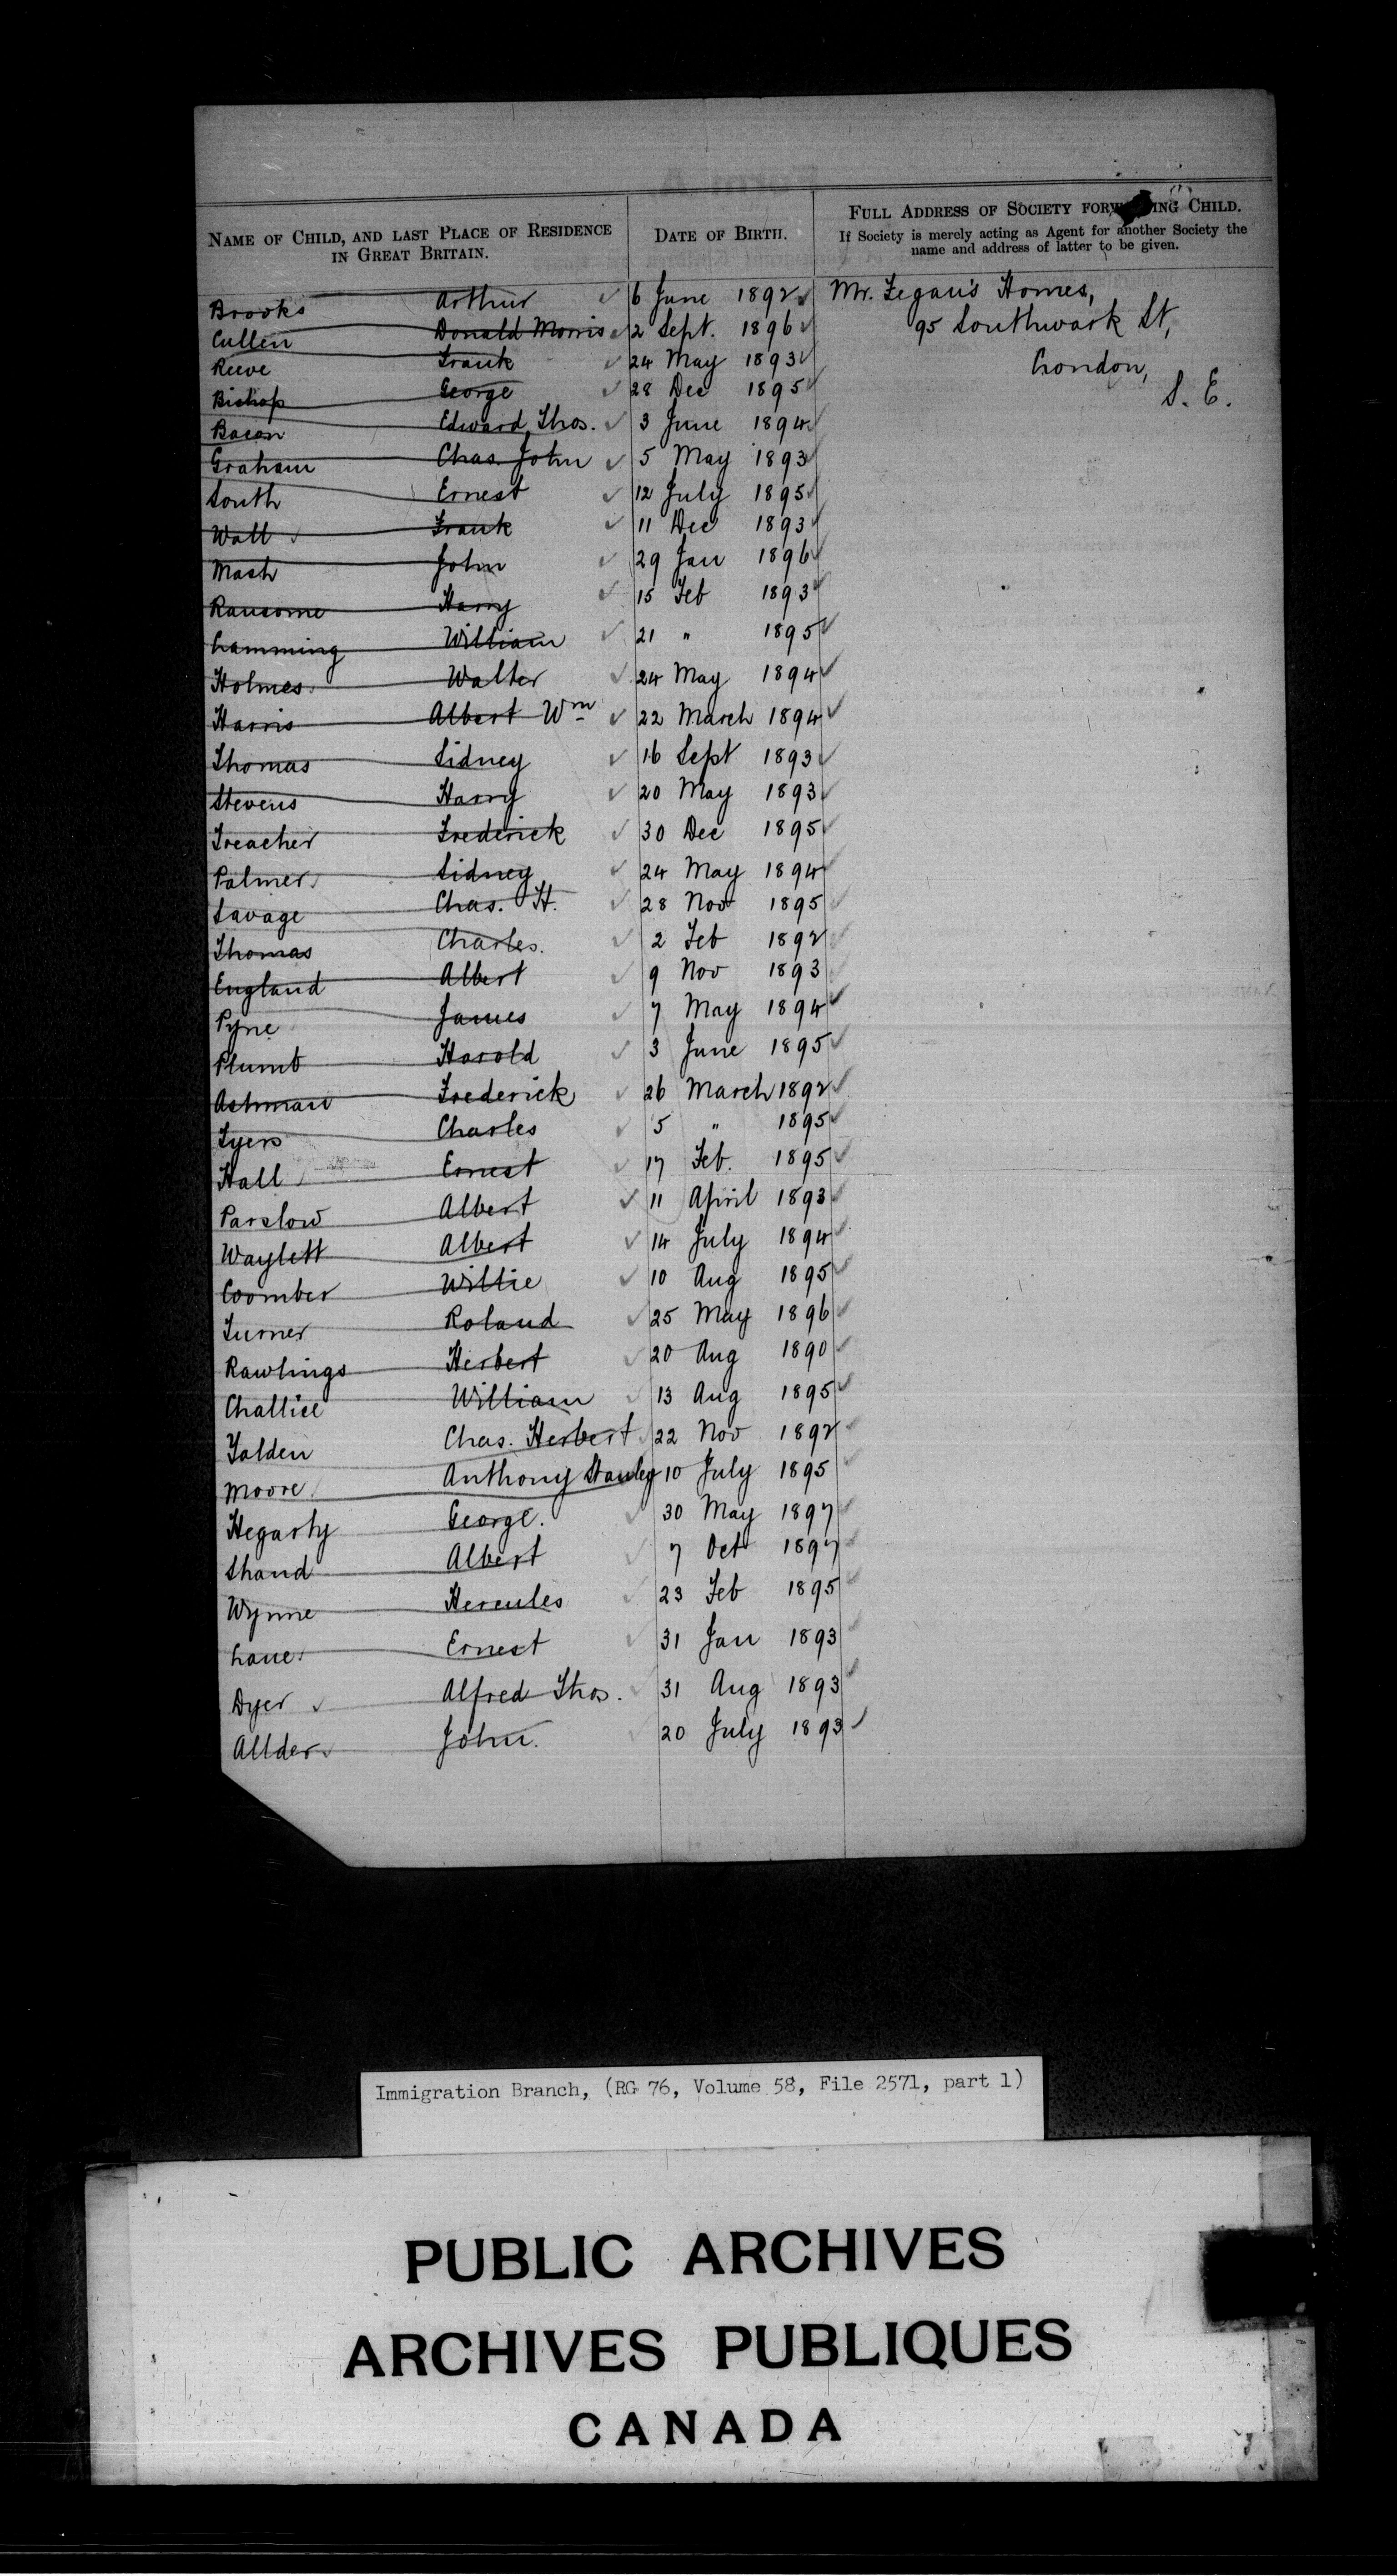 NAME OF CHILD, AND LAST PLACE OF RESIDENCE
IN GREAT BRITAIN.
DATE OF BIRTH.
FULL ADDRESS OF SOCIETY FORWARDING CHILD.
If Society is merely acting as Agent for another Society the
name and address of latter to be given.
Mr. Fegan's Homes,
95 Southwark St,
London,
S. E.
Brooks Arthur 6 June 1892
Cullen Donald Morris 2 Sept. 1896
Reeve Frank 24 May 1893
Bishop George 28 Dec 1895
Bacon Edward Thos. 3 June 1894
Graham Chas. John 5 May 1893
South Ernest 12 July 1895
Wall Frank 11 Dec 1893
Mash John 29 Jan 1896
Ransome Harry 15 Feb 1893
Lamming William 21 " 1895
Holmes Walter 24 May 1894
Harris Albert Wm 22 March 1894
Thomas Sidney 16 Sept 1893
Stevens Harry 20 May 1893
Treacher Frederick 30 Dec 1895
Palmer Sidney 24 May 1894
Savage Chas. H. 28 Nov 1895
Thomas Charles. 2 Feb 1892
England Albert 9 Nov 1893
Pyne James 7 May 1894
Plumb Harold 3 June 1895
Ashman Frederick 26 March 1892
Tyers Charles 5 " 1895
Hall Ernest 17 Feb. 1895
Parslow Albert 11 April 1893
Waylett Albert 14 July 1894
Coomber Willie 10 Aug 1895
Turner Roland 25 May 1896
Rawlings Herbert 20 Aug 1890
Challice William 13 Aug 1895
Yalden Chas. Herbert 22 Nov 1892
Moore Anthony Stanley 10 July 1895
Hegarty George. 30 May 1897
Shand Albert 7 Oct 1897
Wynne Hercules 23 Feb 1895
Lane Ernest 31 Jan 1893
Dyer Alfred Thos. 31 Aug 1893
Allder John. 20 July 1893
Immigration Branch, (RG 76, Volume 58, File 2571, part 1)
PUBLIC ARCHIVES
ARCHIVES PUBLIQUES
CANADA